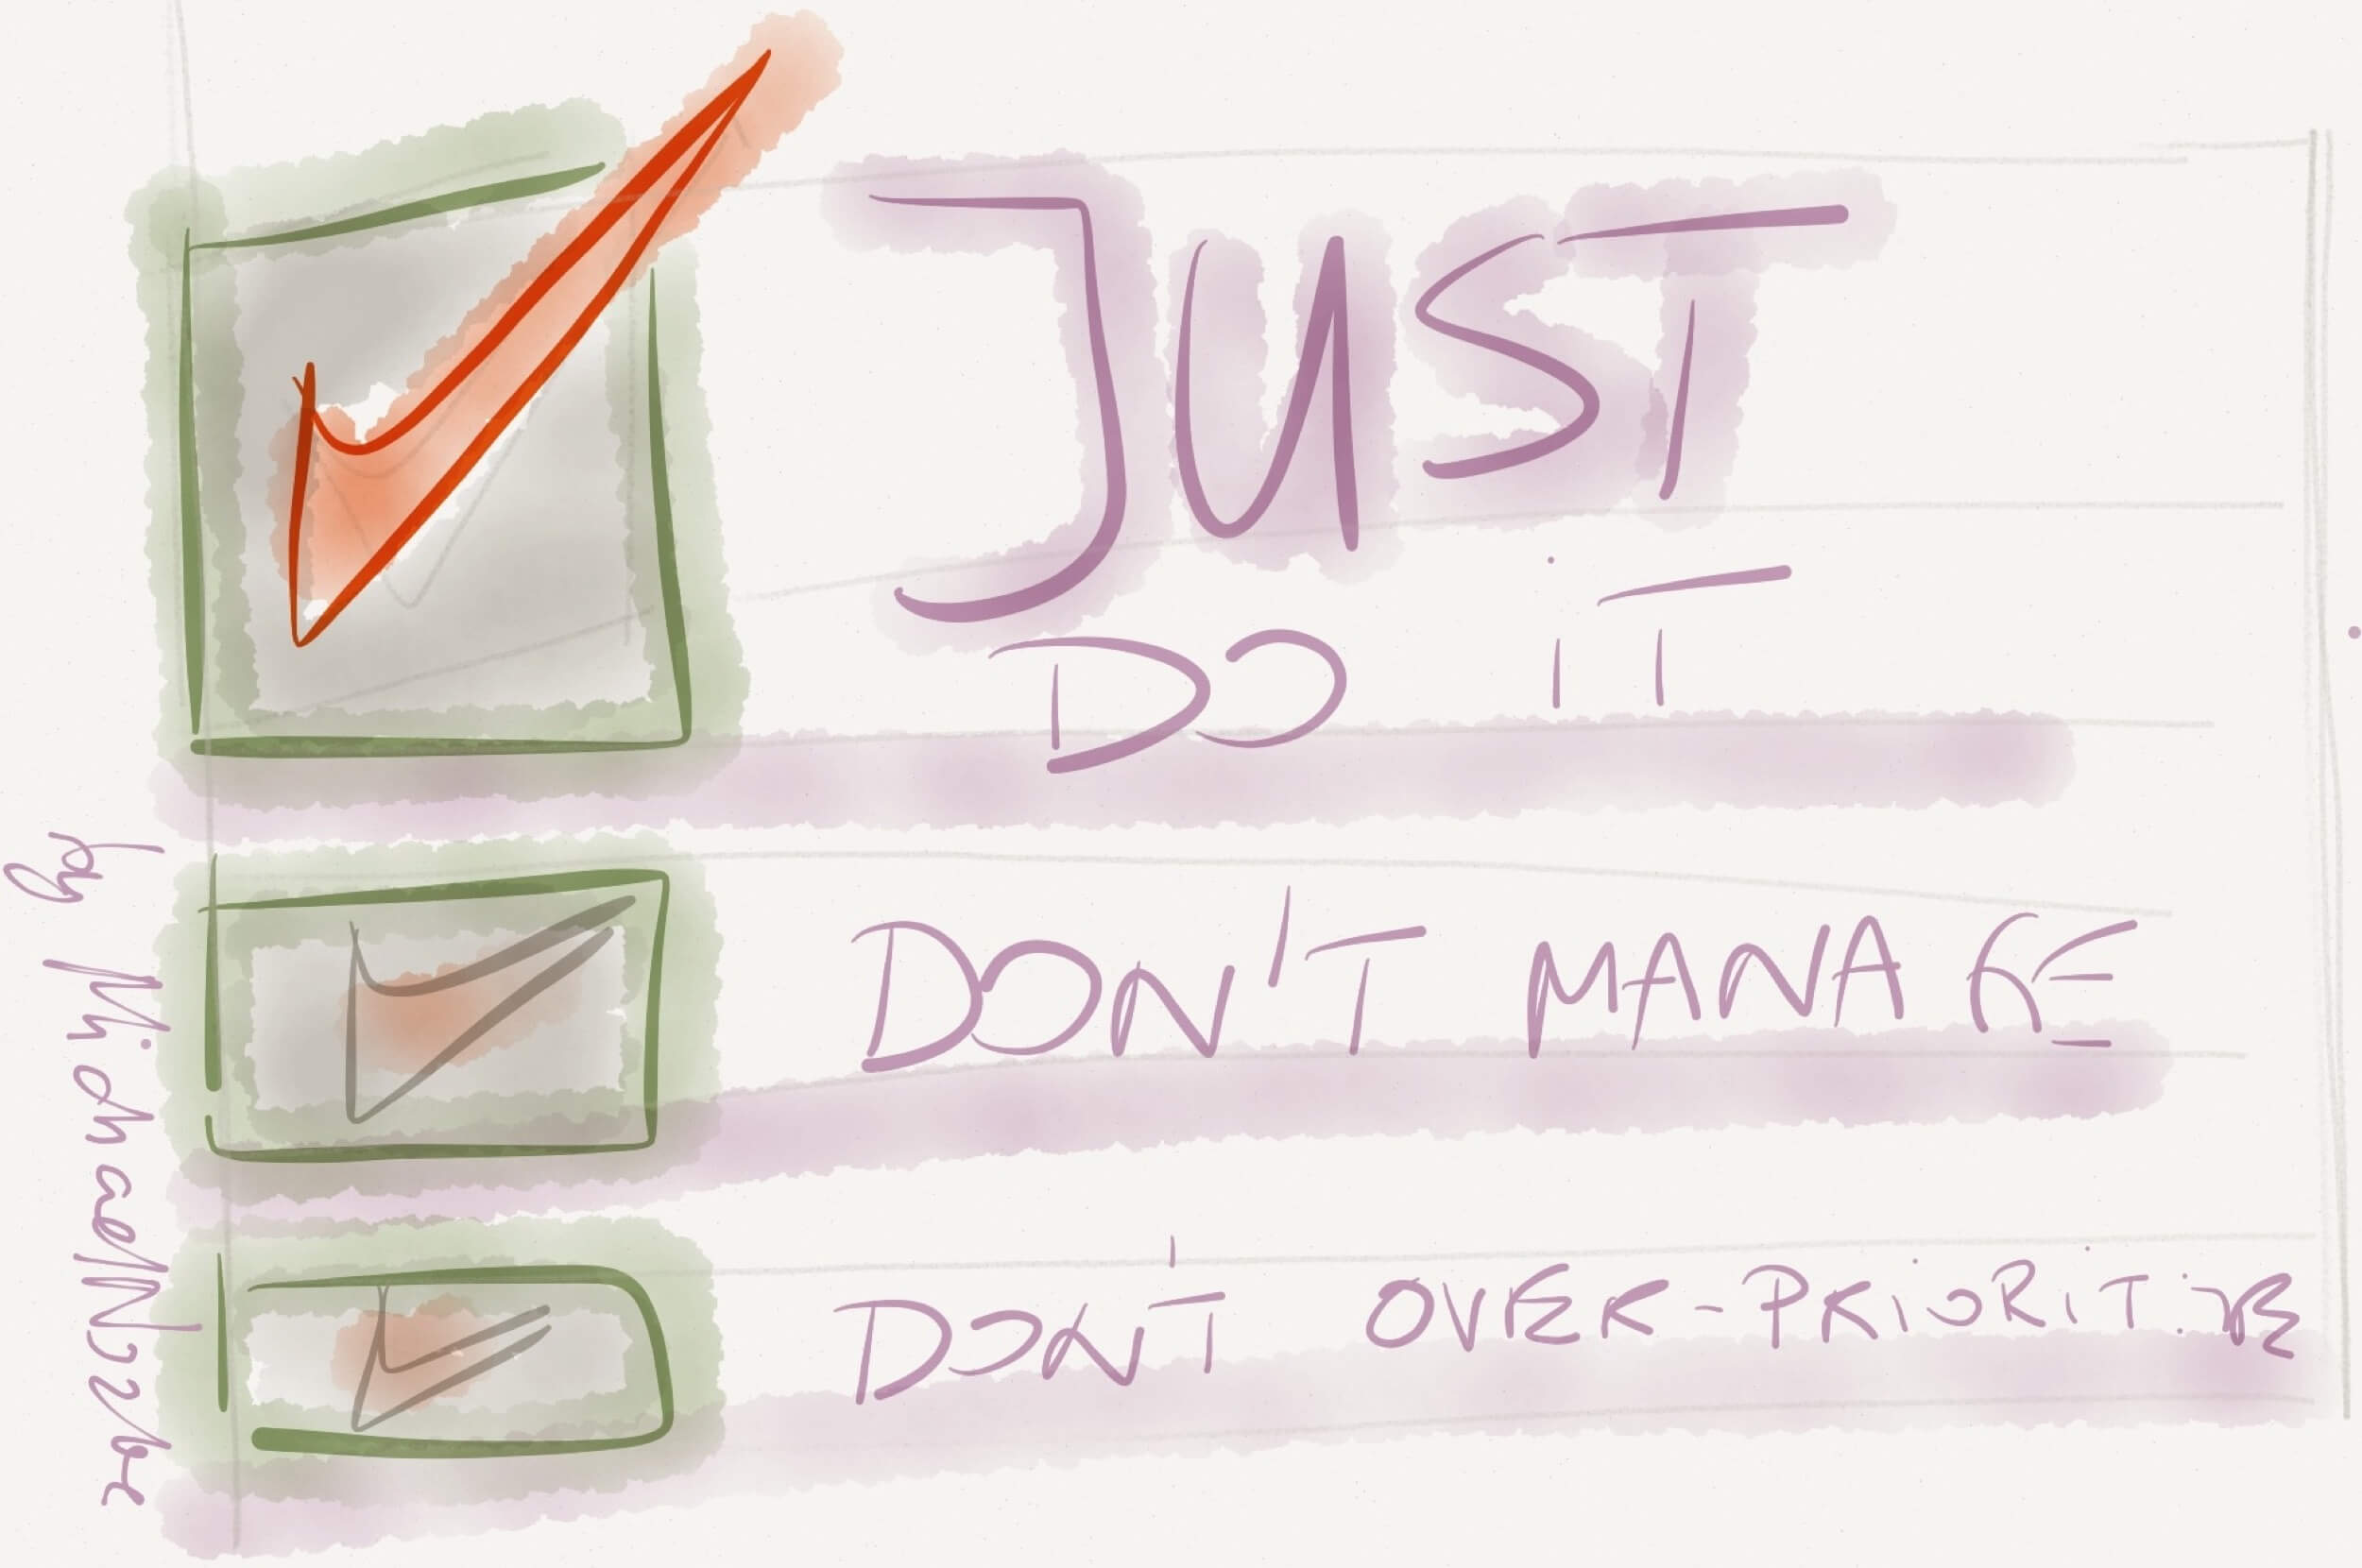 JUST
DO IT
DON'T MANAGE
DON'T OVER-PRIORITIZE
by Michael Nozbe